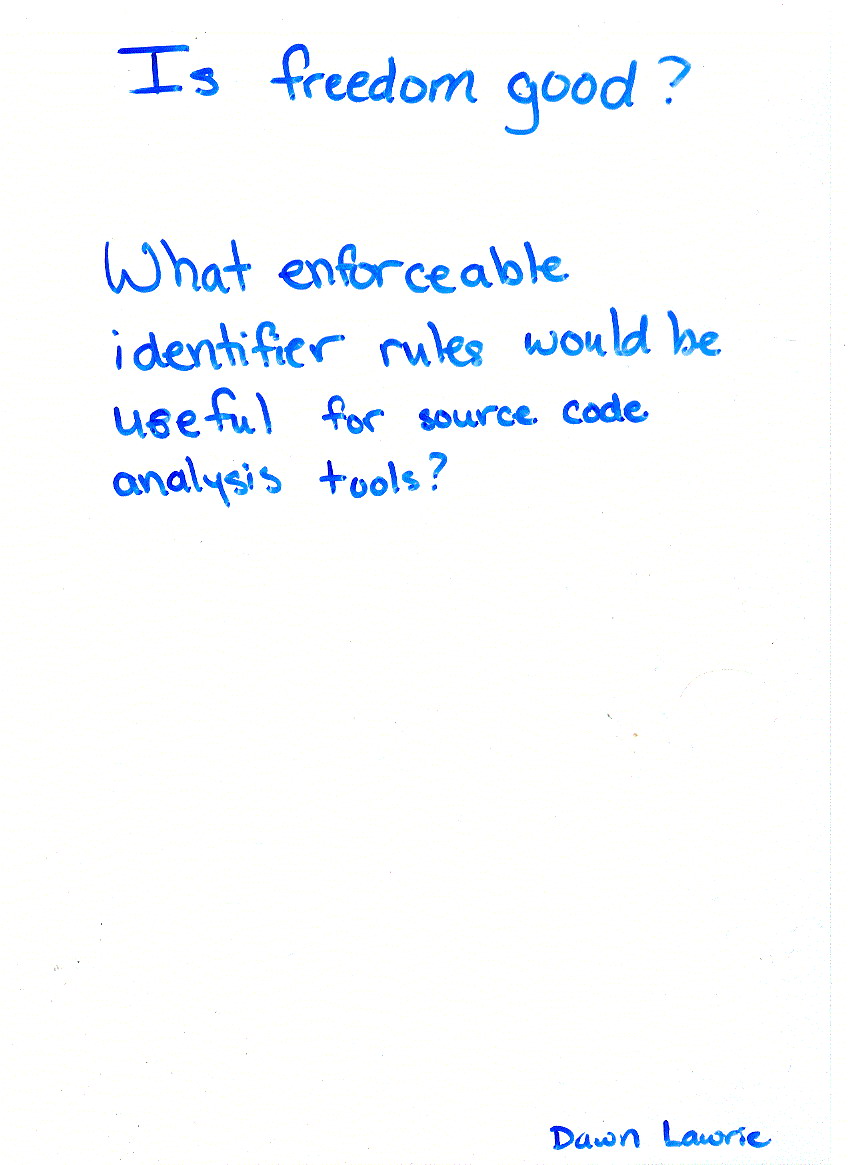 Is freedom good?
What enforceable
identifier rules would be
useful for source code
analysis tools?
Dawn Lawrie